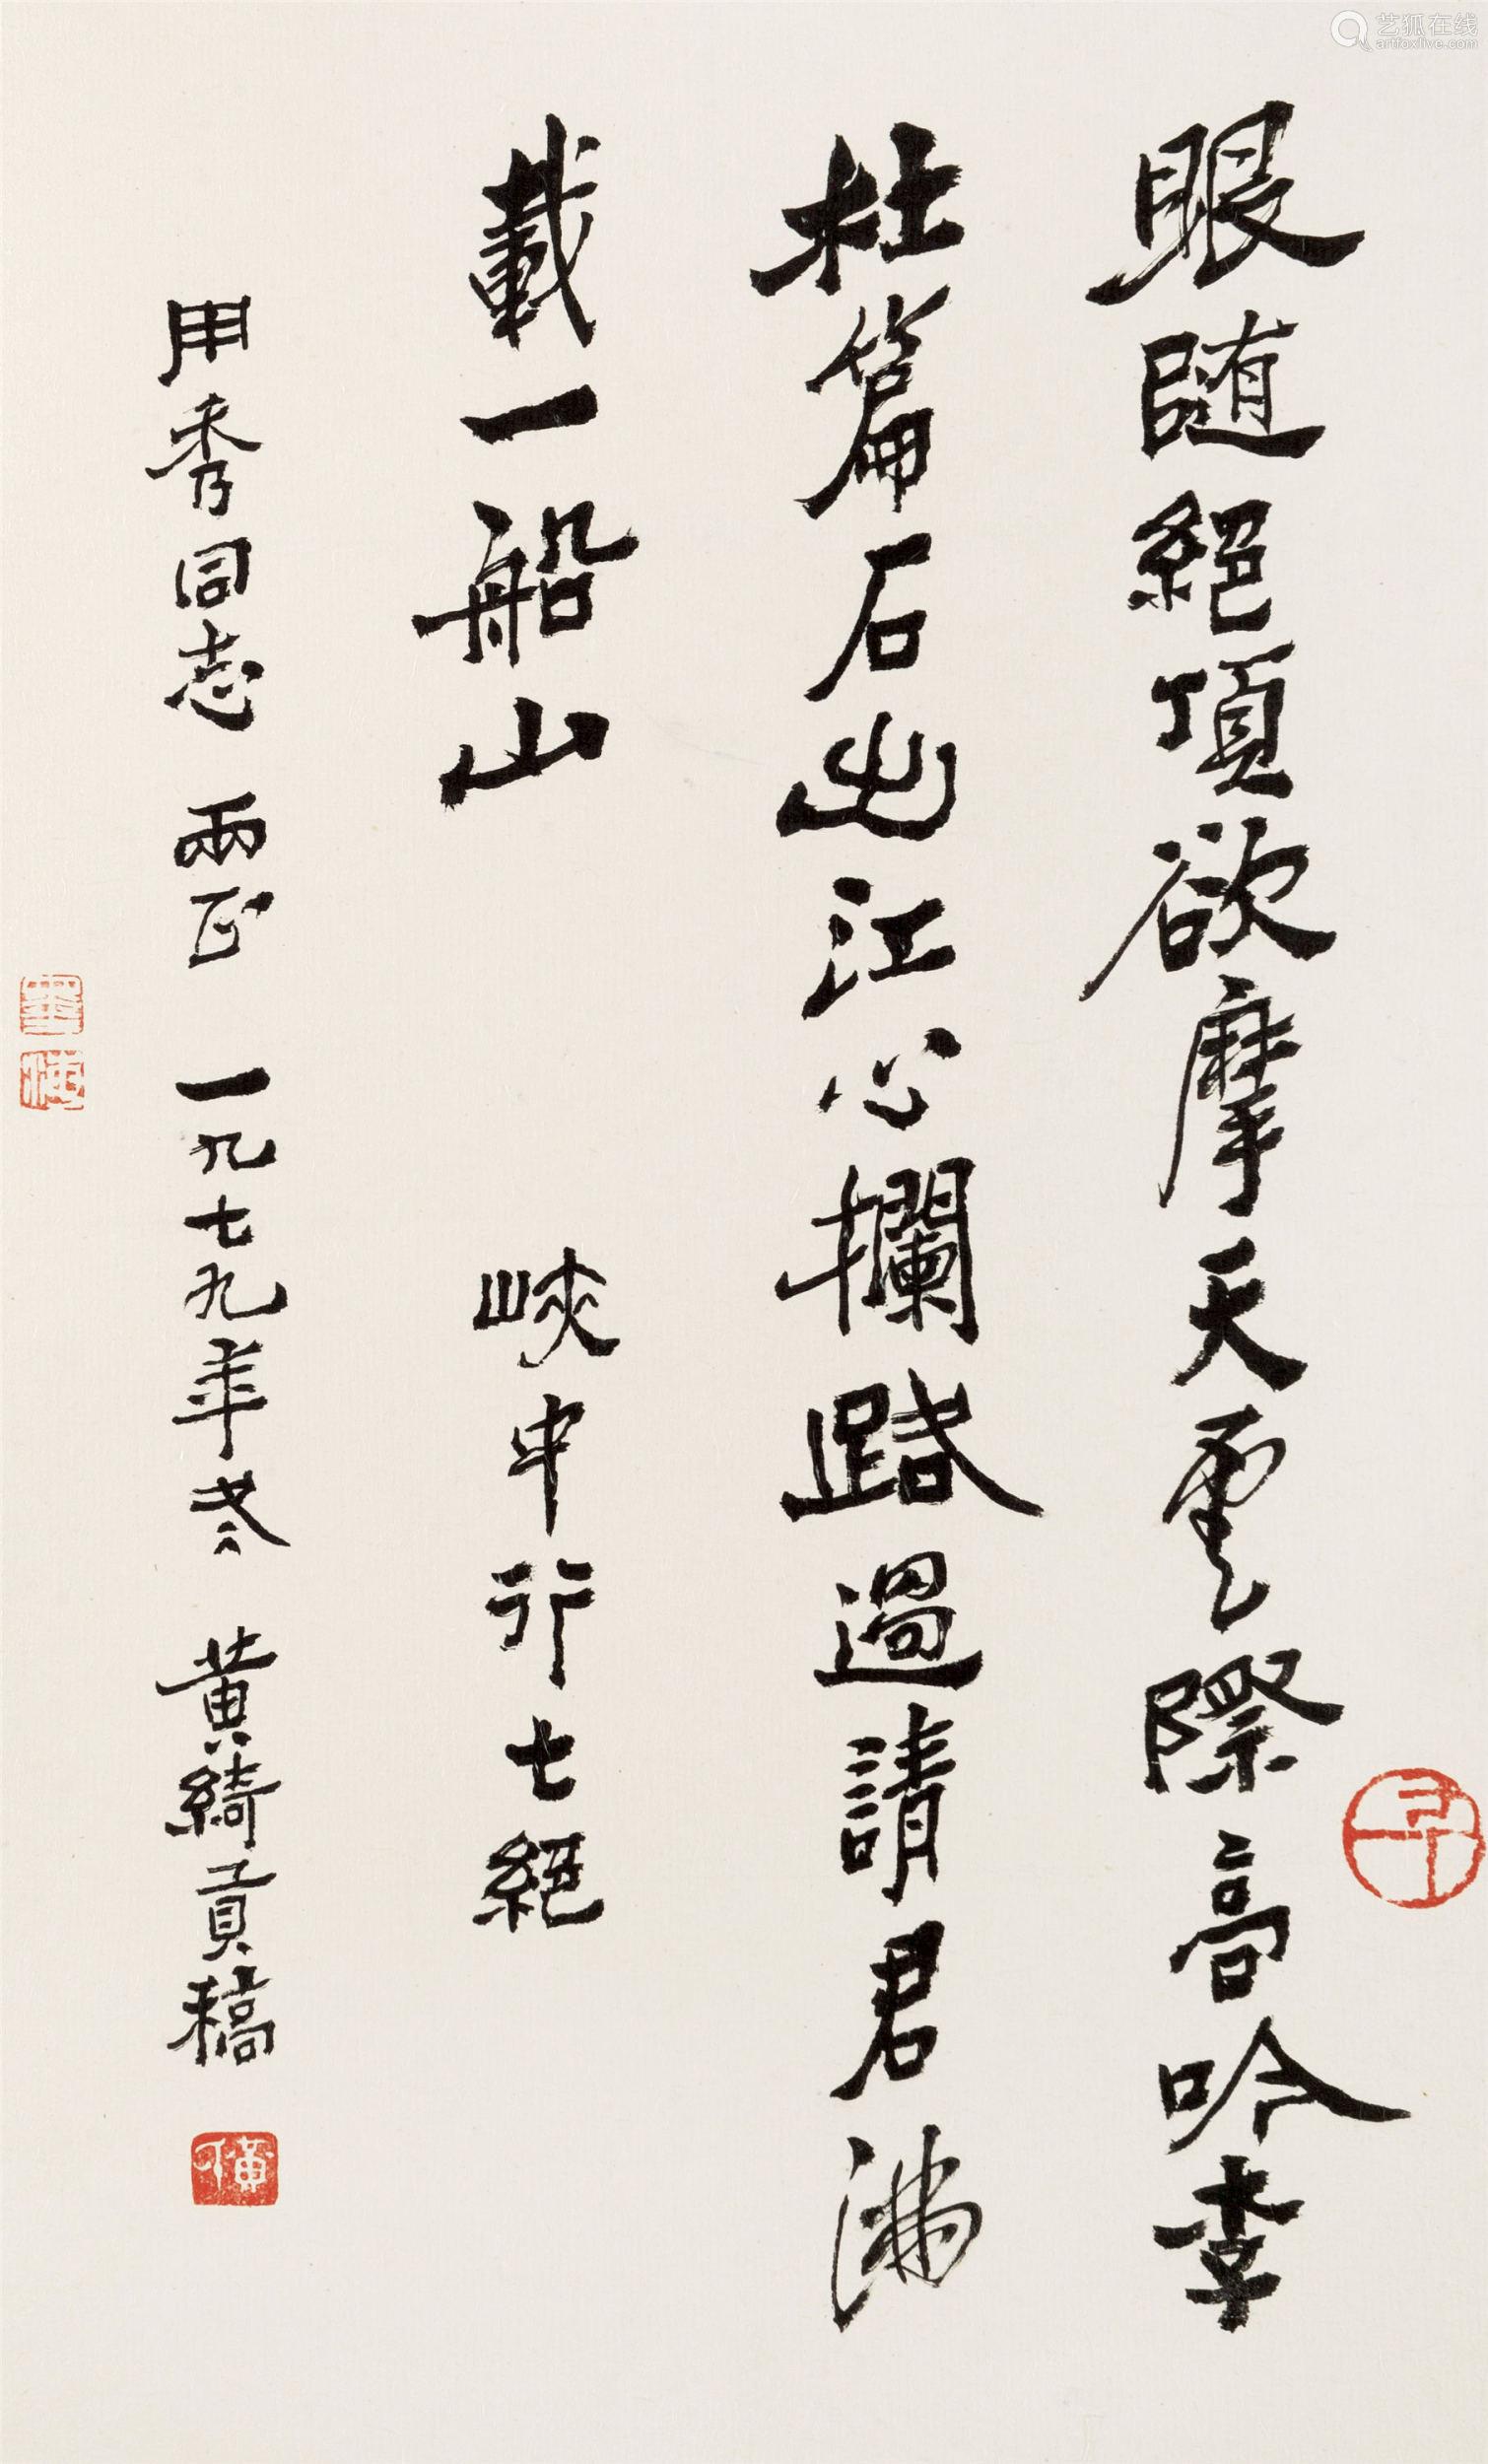 眼随絕頂欲摩天雲際高吟李
杜篇石出江心攔路過請君滿
載一船山
峽中行七絕
用秀同志 兩正 一九七九年冬 黄綺貢稿
艺狐在线
artfoxlive.com